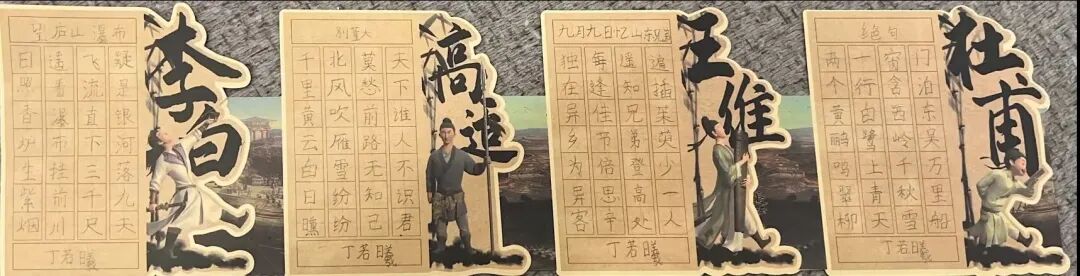 望庐山瀑布
日照香炉生紫烟
遥看瀑布挂前川
飞流直下三千尺
疑是银河落九天
丁若曦
李白
别董大
千里黄云白日曛
北风吹雁雪纷纷
莫愁前路无知己
天下谁人不识君
丁若曦
高适
九月九日忆山东兄弟
独在异乡为异客
每逢佳节倍思亲
遥知兄弟登高处
遍插茱萸少一人
丁若曦
王维
绝句
两个黄鹂鸣翠柳
一行白鹭上青天
窗含西岭千秋雪
门泊东吴万里船
丁若曦
杜甫